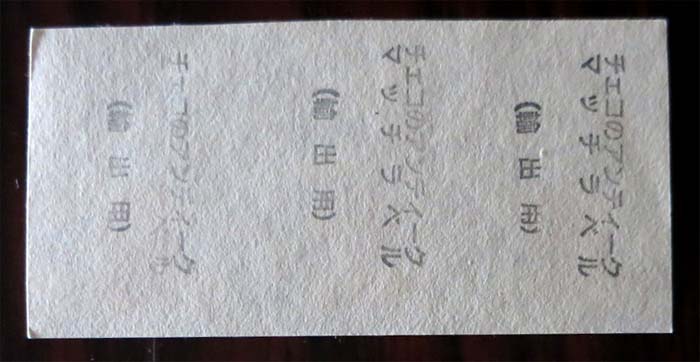 チェコのアンティーク
マッチラベル
(輸出用)
チェコのアンティーク
マッチラベル
(輸出用)
チェコのアンティーク
(輸出用)